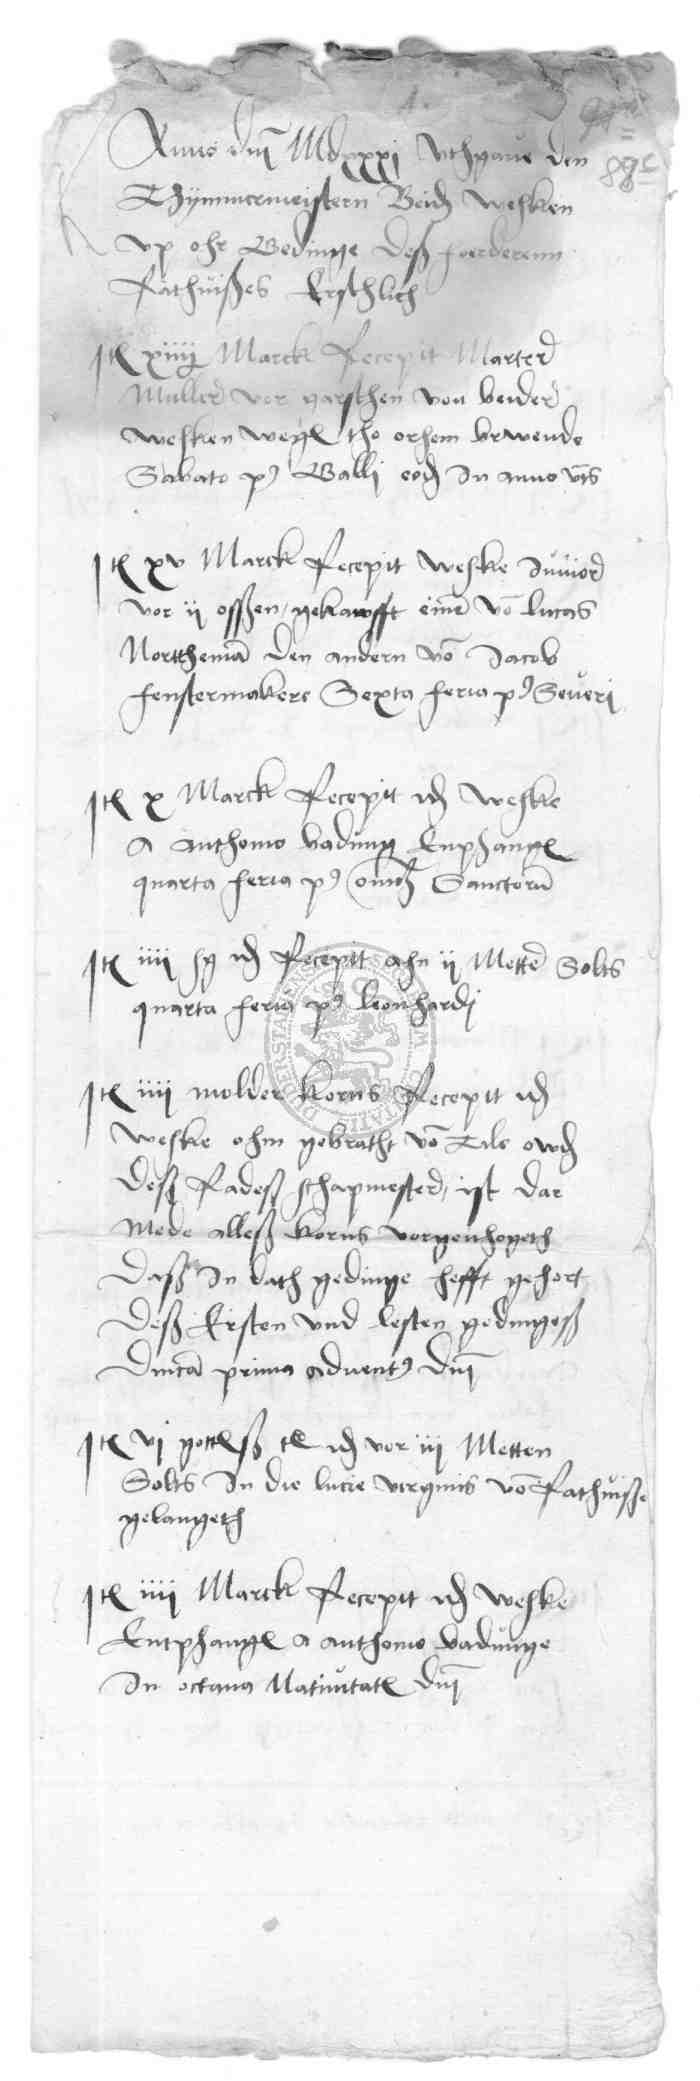 88c
Anno dni Mdxxxj vthgaue den
Tzymmermeistern Beid Wesken
vp ohr Gedinge deß forderenn
Rathuißes Ersthlich
Jt xiiij Marck Recepit Marten
Muller vor garsthen von beider
Wesken weg tho orhem
Sabato p Galli eod Jn anno vts
Jt xv Marck Recepit Weske Junior
vor ij ossen, gekawfft eine vo Lucas
Northema den andern vo Jacob
fenstermakere Sexta feria p Seueri
Jt x Marck Recepit id Weske
a Anthonio Badung Enphang
quarta feria p omn Sanctoru
Jt iiij ß id Recepit ahn ij Mette Solts
quarta feria p Leonhardj
Jt iiij molder korns Recepit id
Weske ohm gebrath vo Tile
deß Radeß schapmester, ist dar
mede alleß korns vorgenhogeth
daß Jn dath gedinge hefft gehort
deß Ersten vnd lesten gedingeß
Dnica prima aduent dni
Jt vj id vor iij Metten
Solts Jn die Lucie virginis vo Rathuiße
gelangeth
Jt iiij Marck Recepit id Weske
Entphang a Anthonio Badunge
Jn octaua Natiuitat dni